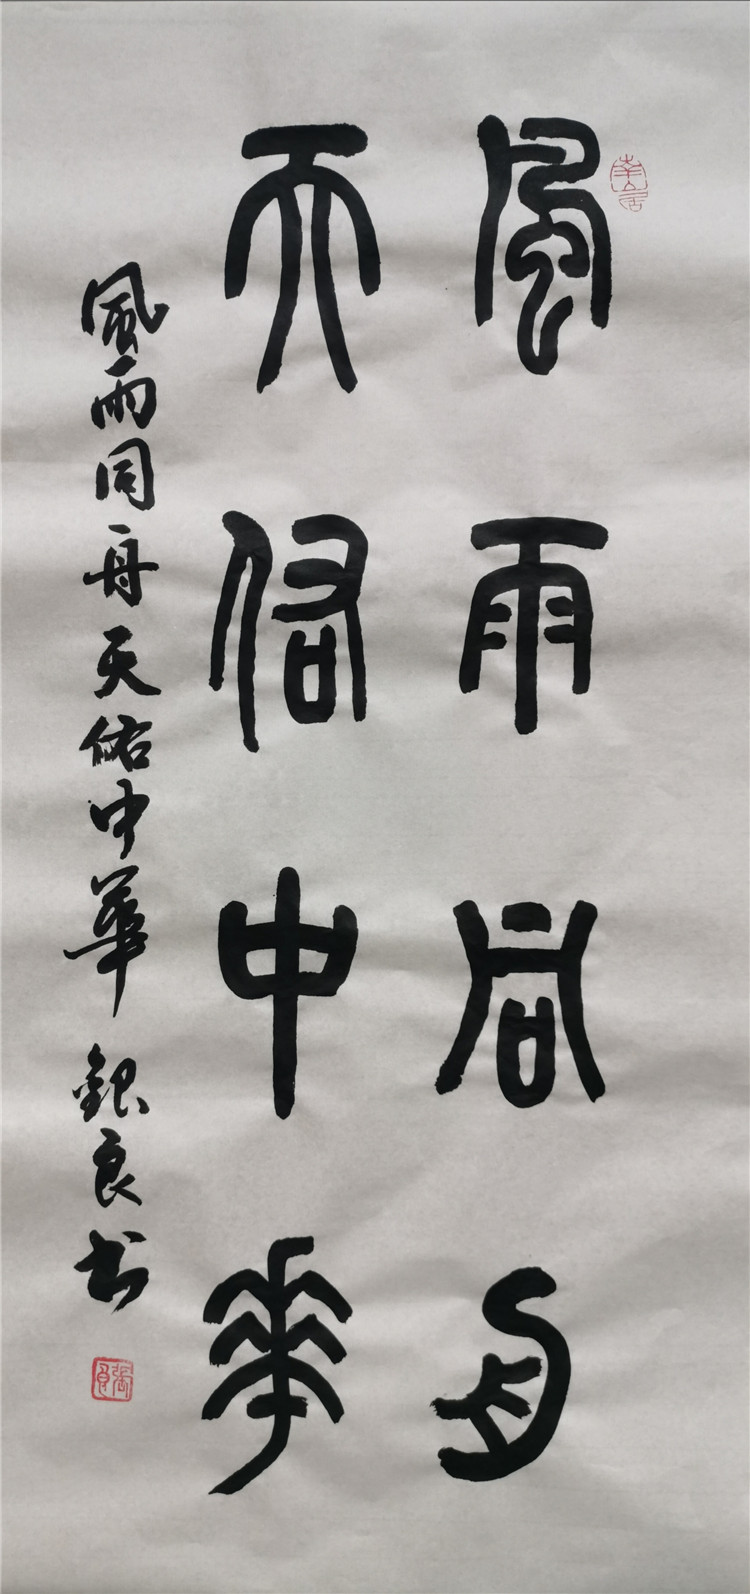 風雨同舟
天佑中華
風雨同舟天佑中華 銀良书